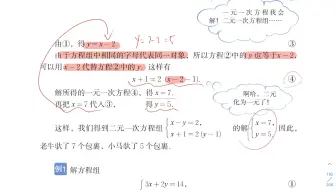 一元一次方程我会
解！二元一次方程组……
由①，得y=x-2. ③
y=7-2=5
由于方程组中相同的字母代表同一对象，所以方程②中的y也等于x-2，
可以用x-2代替方程②中的y. 这样有
x+1=2(x-2-1). ④
解所得的一元一次方程④，得x=7.
再把x=7代入③，得y=5.
啊哈，二元
化为一元了！
这样，我们得到二元一次方程组{x-y=2, x+1=2(y-1)的解{x=7, y=5. 因此，
老牛驮了7个包裹，小马驮了5个包裹.
例1 解方程组
{3x+2y=14, ①